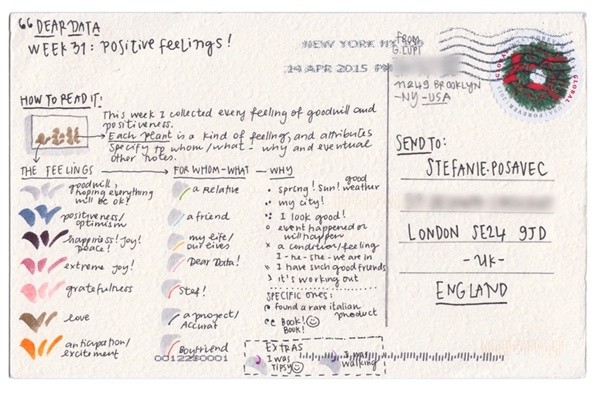 “ DEAR DATA
WEEK 31: POSITIVE FEELINGS!
FROM
G. LUPI
11249 BROOKLYN
-NY-USA
NEW YORK NY
14 APR 2015 PM
GLOBAL
FOREVER
HOW TO READ IT:
This week I collected every feeling of goodwill and
positiveness.
Each plant is a kind of feeling, and attributes
specify to whom/what - why and eventual
other notes.
THE FEELINGS
goodwill,
hoping everything
will be OK!
positiveness/
optimism
happiness! Joy!
peace!
extreme joy!
gratefulness
love
anticipation/
excitement
FOR WHOM-WHAT
a relative
a friend
my life/
ourselves
Dear Data!
Stef!
a project/
Accurat
Boyfriend
WHY
spring! sun! good weather
my city!
I look good!
event happened or
will happen
a condition/feeling
I-he-she-we are in
I have such good friends
it's working out
SPECIFIC ONES:
found a rare italian
product
Book!
Book!
EXTRAS
I was
tipsy
I was
walking
SEND TO:
STEFANIE POSAVEC
LONDON SE24 9JD
-UK-
ENGLAND